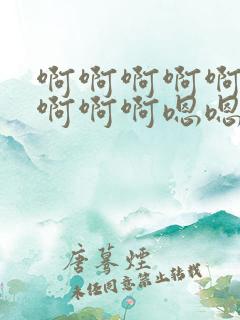 啊啊啊啊啊
啊啊啊嗯嗯
唐蓦煙
未经同意禁止转载